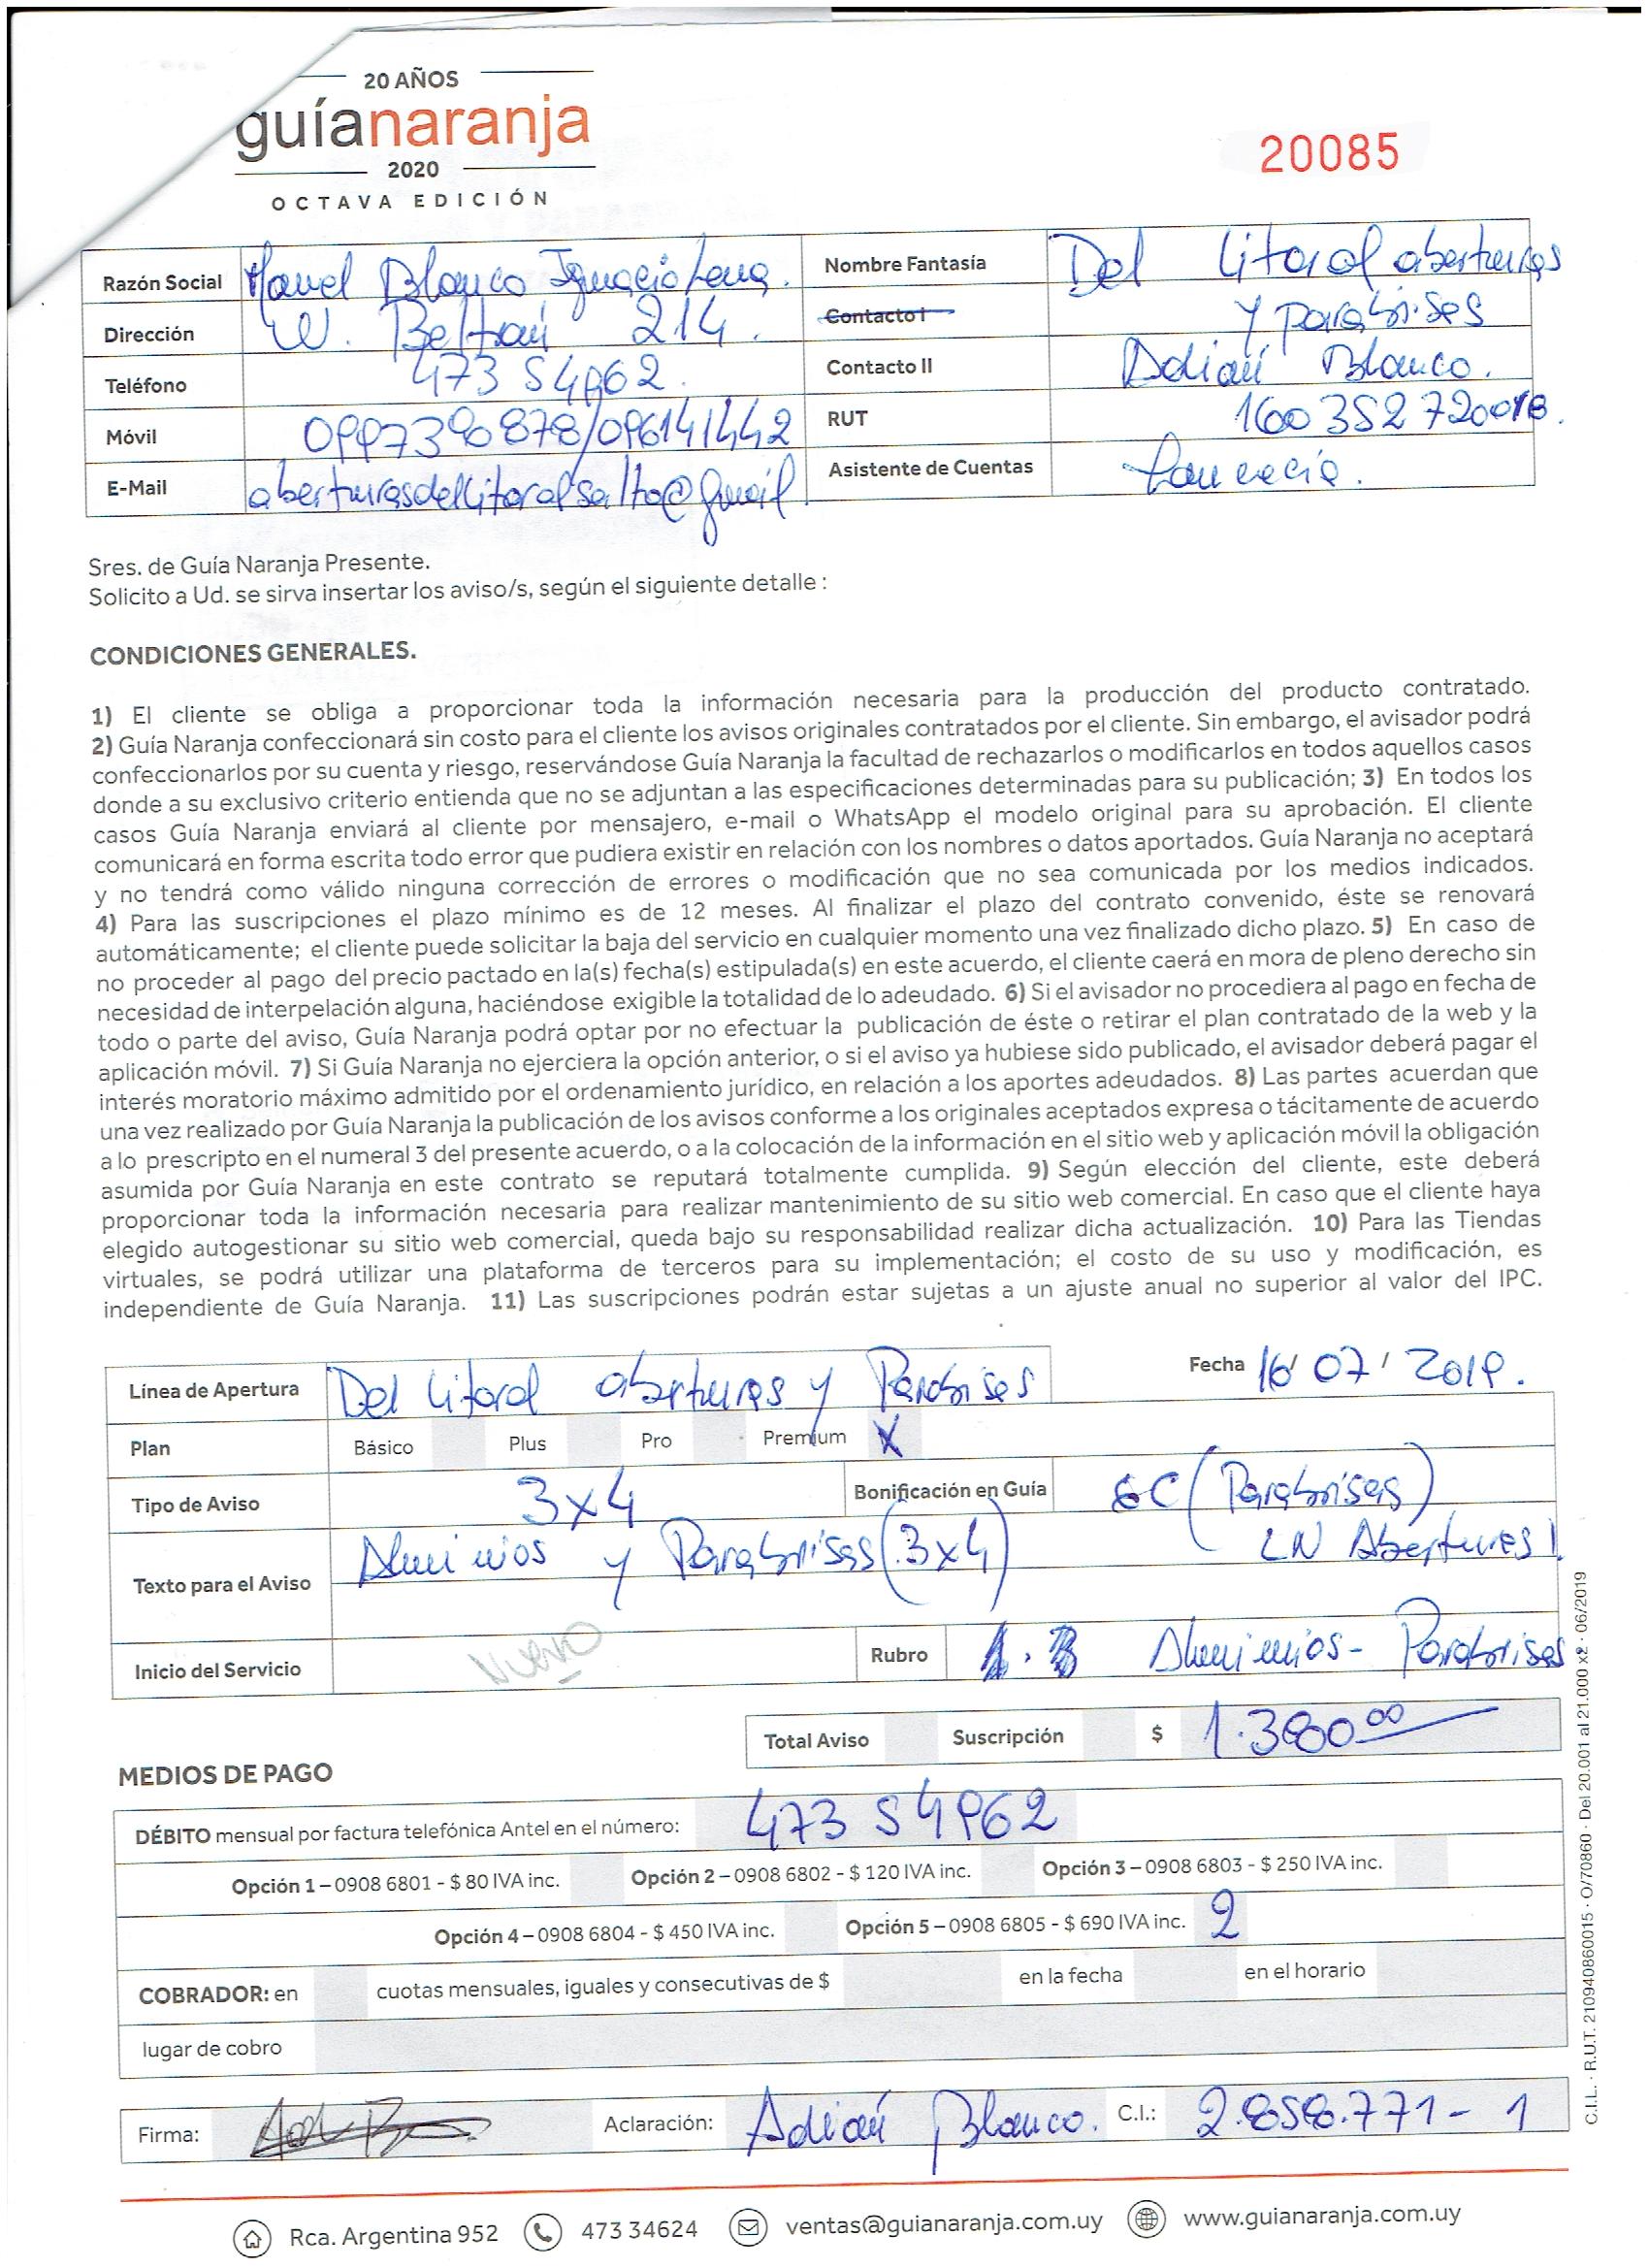 20 AÑOS
guíanaranja
2020
OCTAVA EDICIÓN
20085
Razón Social Blanco Ignacio
Nombre Fantasía Del Litoral aberturas
y parabrises
Dirección W. Beltrán 214.
Contacto I
Teléfono 473 54962.
Contacto II Adián Blanco.
Móvil 0997390878/096141442
RUT 1600352720018.
E-Mail aberturasdellitoralsalto@gmail.
Asistente de Cuentas
Sres. de Guía Naranja Presente.
Solicito a Ud. se sirva insertar los aviso/s, según el siguiente detalle :
CONDICIONES GENERALES.
1) El cliente se obliga a proporcionar toda la información necesaria para la producción del producto contratado.
2) Guía Naranja confeccionará sin costo para el cliente los avisos originales contratados por el cliente. Sin embargo, el avisador podrá
confeccionarlos por su cuenta y riesgo, reservándose Guía Naranja la facultad de rechazarlos o modificarlos en todos aquellos casos
donde a su exclusivo criterio entienda que no se adjuntan a las especificaciones determinadas para su publicación; 3) En todos los
casos Guía Naranja enviará al cliente por mensajero, e-mail o WhatsApp el modelo original para su aprobación. El cliente
comunicará en forma escrita todo error que pudiera existir en relación con los nombres o datos aportados. Guía Naranja no aceptará
y no tendrá como válido ninguna corrección de errores o modificación que no sea comunicada por los medios indicados.
4) Para las suscripciones el plazo mínimo es de 12 meses. Al finalizar el plazo del contrato convenido, éste se renovará
automáticamente; el cliente puede solicitar la baja del servicio en cualquier momento una vez finalizado dicho plazo. 5) En caso de
no proceder al pago del precio pactado en la(s) fecha(s) estipulada(s) en este acuerdo, el cliente caerá en mora de pleno derecho sin
necesidad de interpelación alguna, haciéndose exigible la totalidad de lo adeudado. 6) Si el avisador no procediera al pago en fecha de
todo o parte del aviso, Guía Naranja podrá optar por no efectuar la publicación de éste o retirar el plan contratado de la web y la
aplicación móvil. 7) Si Guía Naranja no ejerciera la opción anterior, o si el aviso ya hubiese sido publicado, el avisador deberá pagar el
interés moratorio máximo admitido por el ordenamiento jurídico, en relación a los aportes adeudados. 8) Las partes acuerdan que
una vez realizado por Guía Naranja la publicación de los avisos conforme a los originales aceptados expresa o tácitamente de acuerdo
a lo prescripto en el numeral 3 del presente acuerdo, o a la colocación de la información en el sitio web y aplicación móvil la obligación
asumida por Guía Naranja en este contrato se reputará totalmente cumplida. 9) Según elección del cliente, este deberá
proporcionar toda la información necesaria para realizar mantenimiento de su sitio web comercial. En caso que el cliente haya
elegido autogestionar su sitio web comercial, queda bajo su responsabilidad realizar dicha actualización. 10) Para las Tiendas
virtuales, se podrá utilizar una plataforma de terceros para su implementación; el costo de su uso y modificación, es
independiente de Guía Naranja. 11) Las suscripciones podrán estar sujetas a un ajuste anual no superior al valor del IPC.
Línea de Apertura Del Litoral aberturas y Parabrises
Fecha 16/ 07 / 2019.
Plan Básico Plus Pro Premium X
Tipo de Aviso 3x4
Bonificación en Guía (Parabrises)
LN Aberturas
Texto para el Aviso Aluminios y Parabrises (3x4)
Inicio del Servicio Nuevo
Rubro Aluminios - Parabrises
Total Aviso Suscripción $ 1.380 00
MEDIOS DE PAGO
DÉBITO mensual por factura telefónica Antel en el número: 473 54962
Opción 1 – 0908 6801 - $ 80 IVA inc. Opción 2 – 0908 6802 - $ 120 IVA inc. Opción 3 – 0908 6803 - $ 250 IVA inc.
Opción 4 – 0908 6804 - $ 450 IVA inc. Opción 5 – 0908 6805 - $ 690 IVA inc. 2
COBRADOR: en cuotas mensuales, iguales y consecutivas de $ en la fecha en el horario
lugar de cobro
Firma: Aclaración: Adián Blanco. C.I.: 2.858.771-1
C.I.L. · R.U.T. 210940860015 · O/70860 · Del 20.001 al 21.000 x2 · 06/2019
Rca. Argentina 952 473 34624 ventas@guianaranja.com.uy www.guianaranja.com.uy